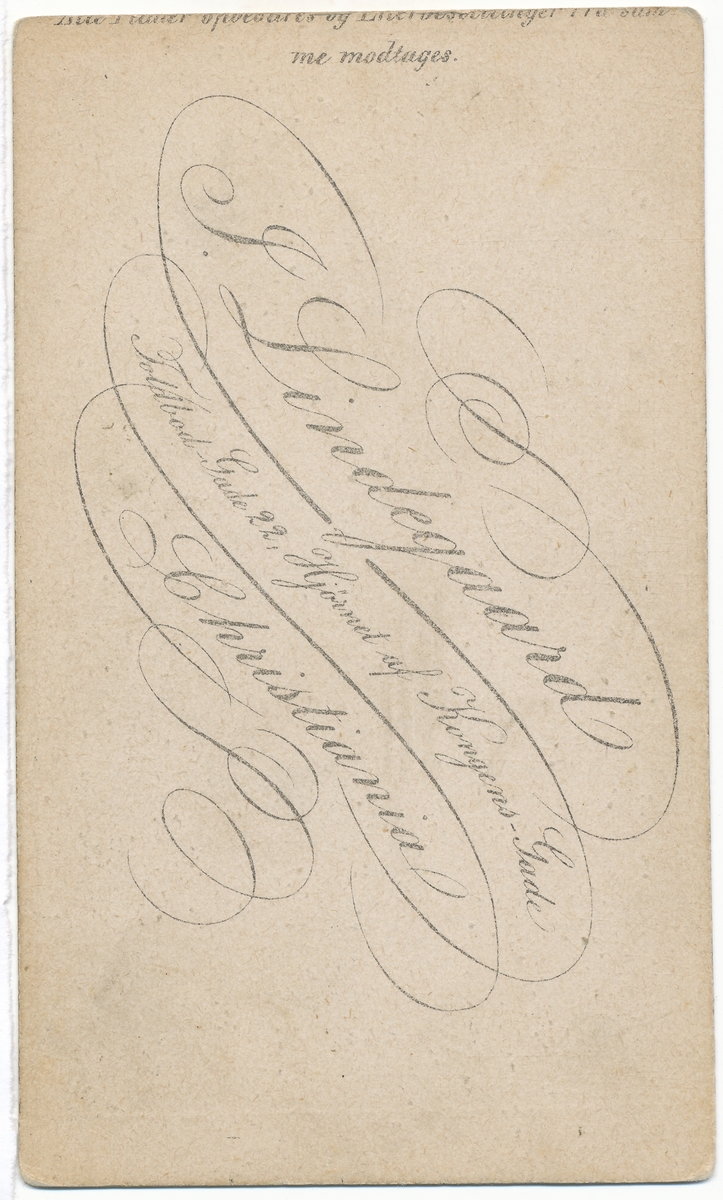 Alle Plader opbevares og Efterbestillinger fra sam-
me modtages.
J. Lindegaard
Toldbod-Gade 22, Hjörnet af Kongens-Gade
Christiania